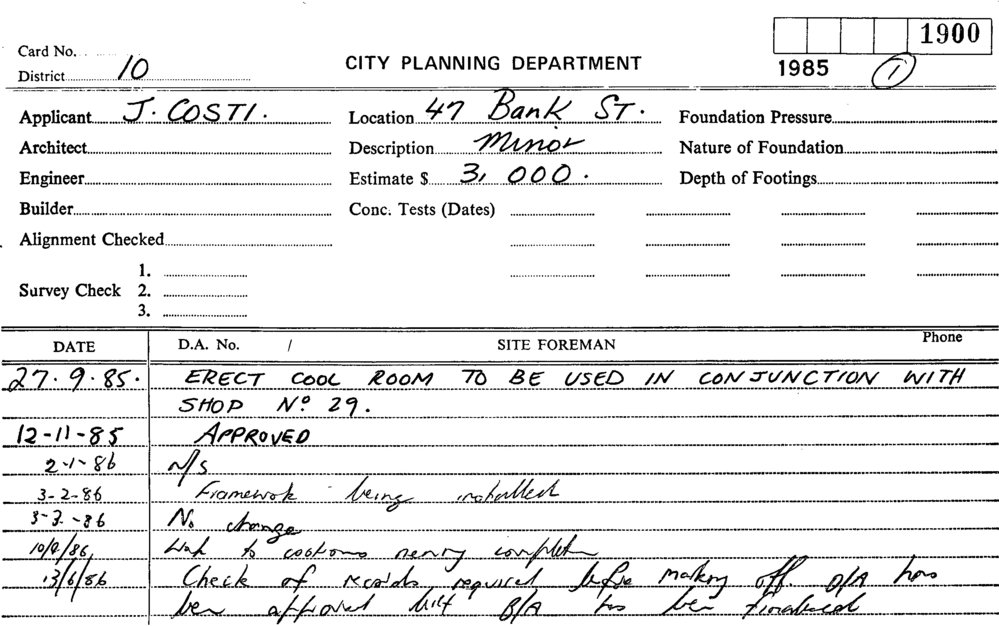 1900
Card No.
District 10
CITY PLANNING DEPARTMENT
1985 1
Applicant J. COSTI.
Location 47 Bank ST.
Foundation Pressure
Architect
Description Minor
Nature of Foundation
Engineer
Estimate $ 3,000.
Depth of Footings
Builder
Conc. Tests (Dates)
Alignment Checked
Survey Check
1.
2.
3.
DATE
D.A. No. /
SITE FOREMAN
Phone
27.9.85. ERECT COOL ROOM TO BE USED IN CONJUNCTION WITH
SHOP No 29.
12-11-85 APPROVED
2-1-86 N/S
3-2-86 Framework being installed
3-3-86 No change
to nearing
13/6/86 Check of records required before marking off. D/A has
been approved but B/A has been finalised